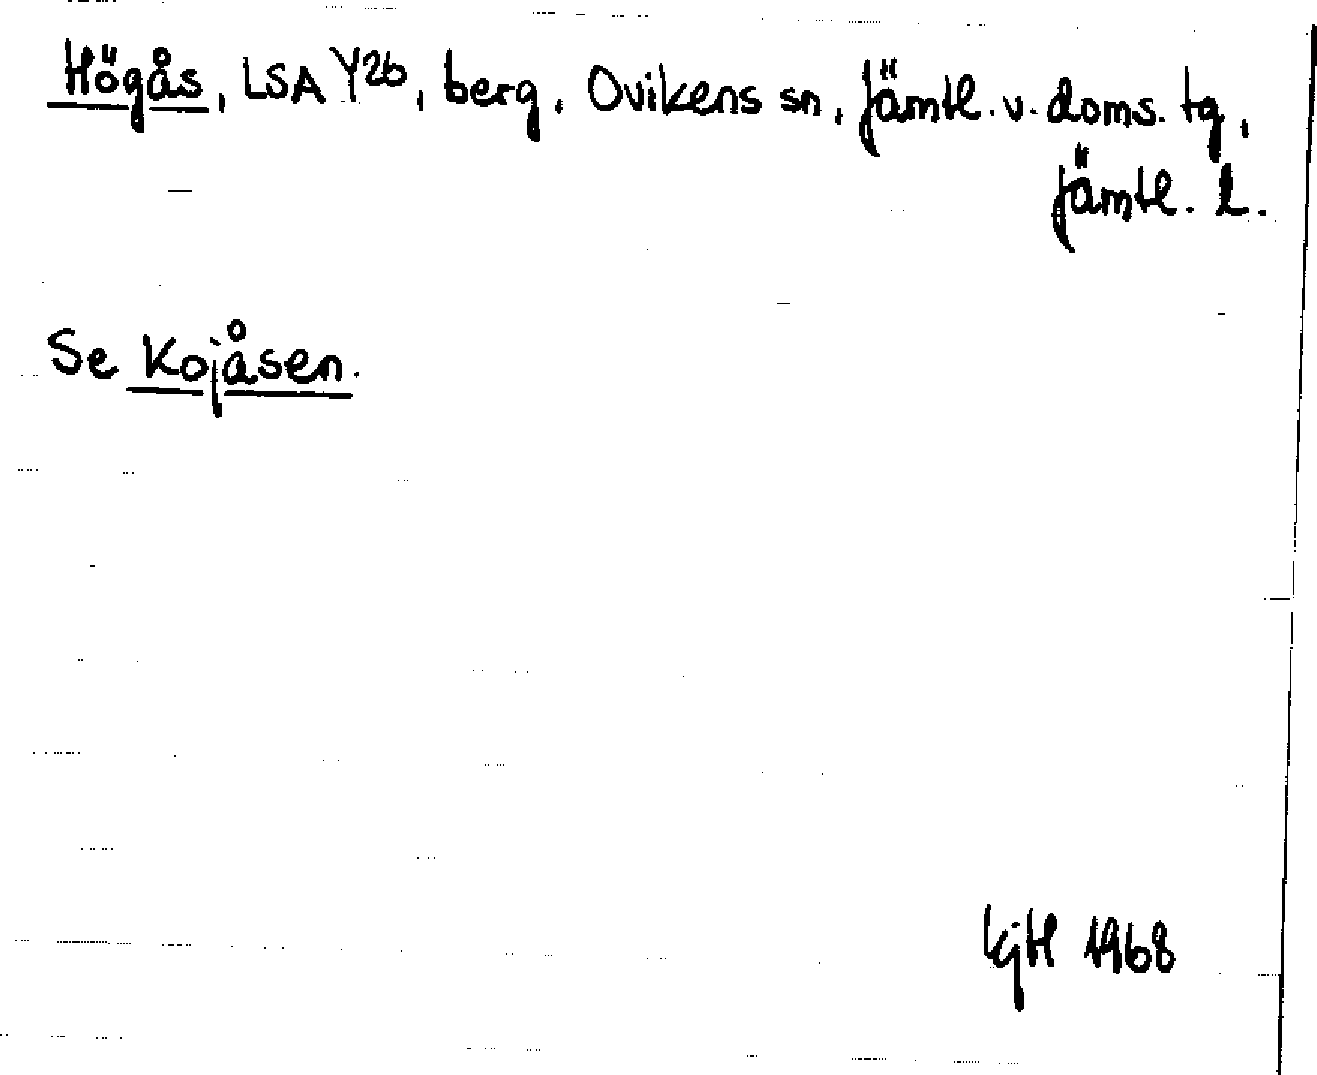 Högås, LSA Y26, berg, Ovikens sn, Jämtl. v. doms. tg,
Jämtl. l.
Se Kojåsen.
KjH 1968